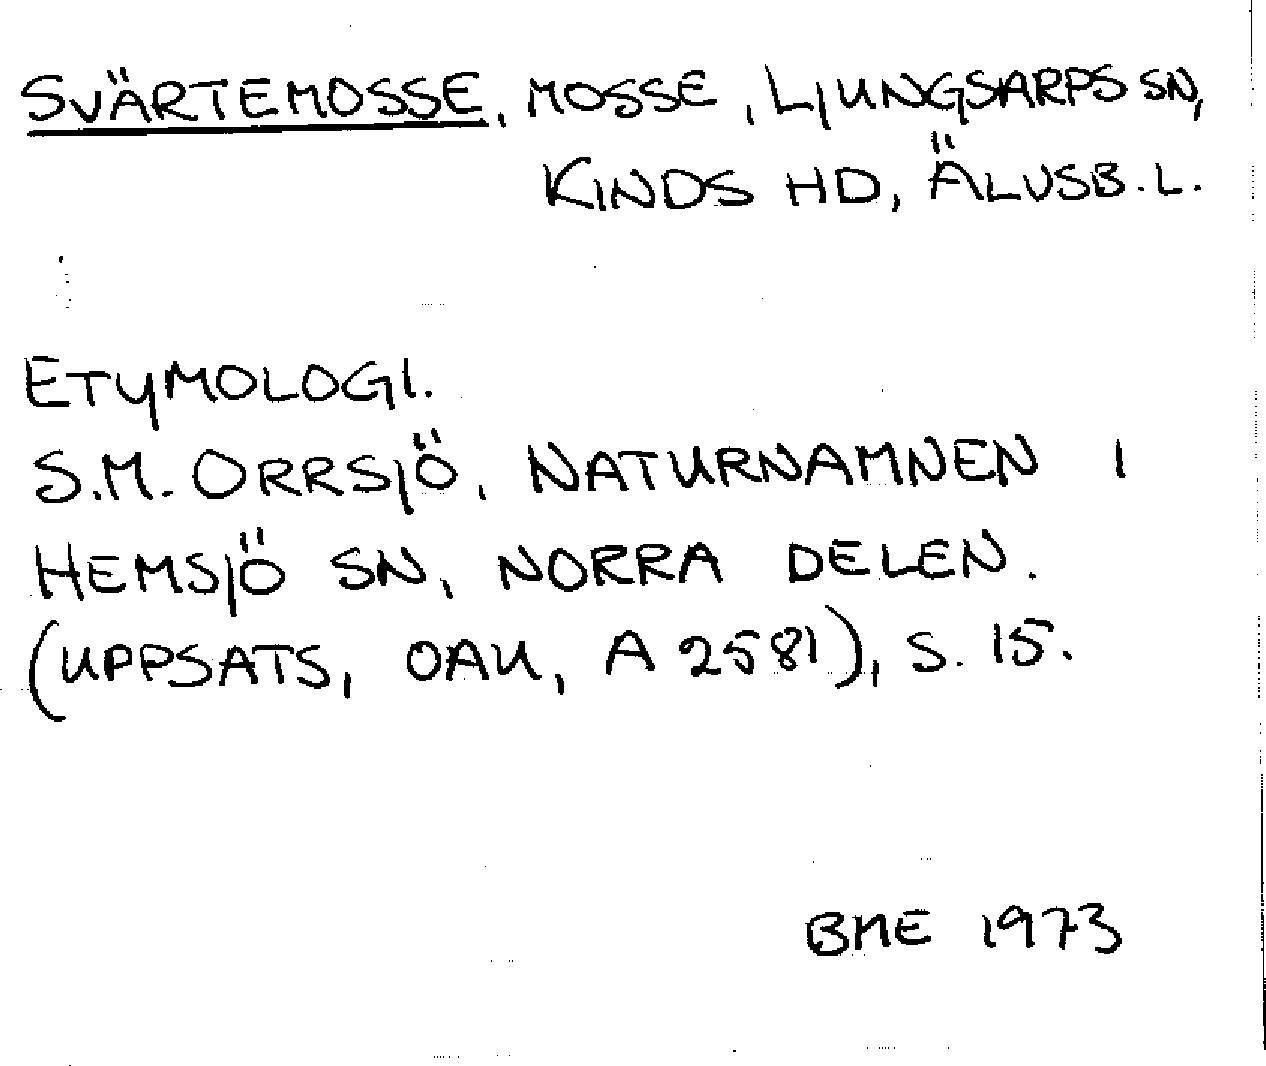 SVÄRTEMOSSE, MOSSE, LJUNGSARPS SN,
KINDS HD, ÄLVSB. L.
ETYMOLOGI.
S.M. ORRSJÖ, NATURNAMNEN I
HEMSJÖ SN, NORRA DELEN.
(UPPSATS, OAU, A 2581), S. 15.
BME 1973